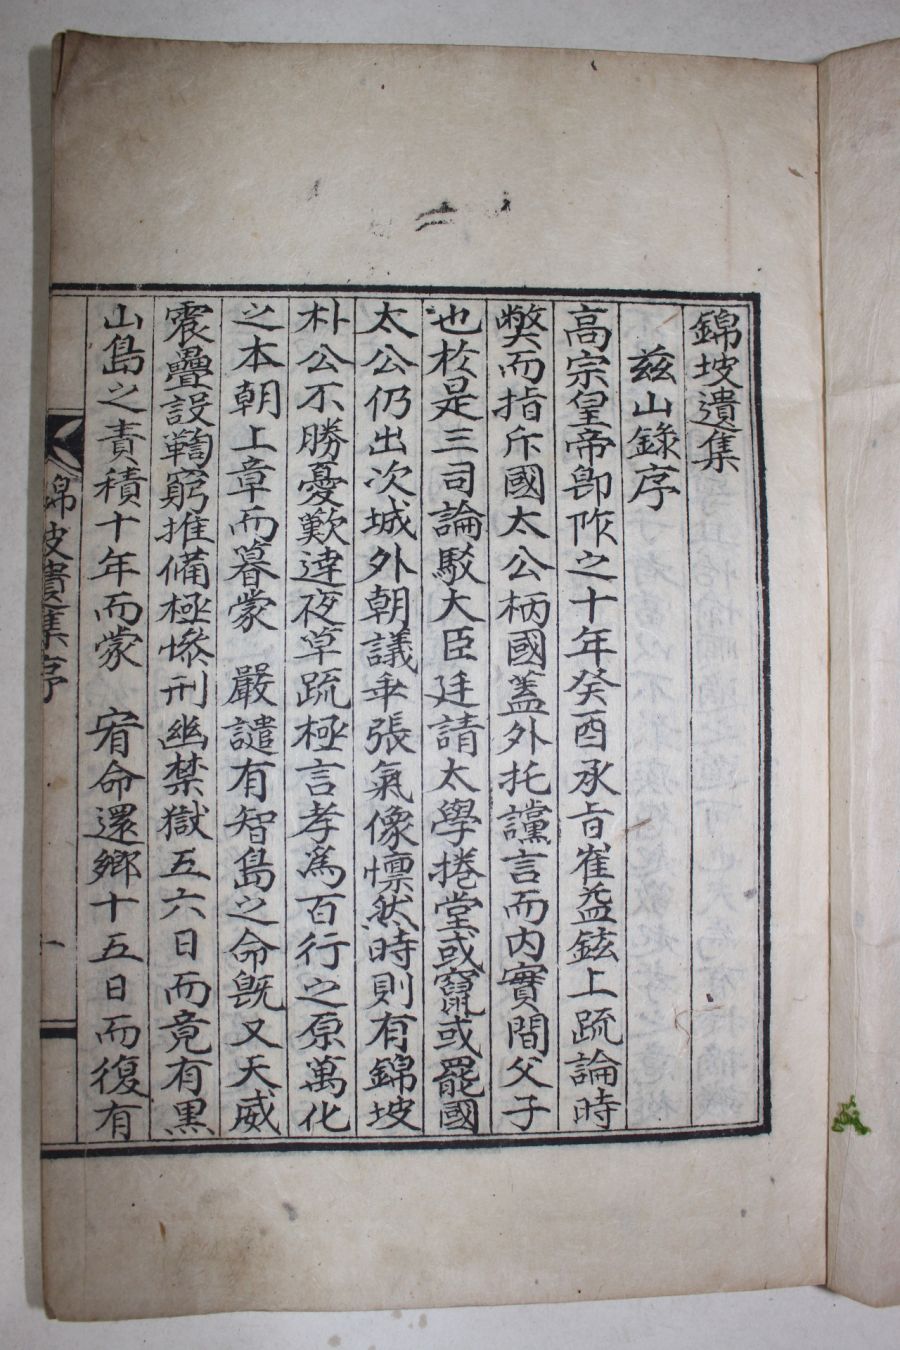 錦坡遺集
玆山錄序
高宗皇帝卽阼之十年癸酉承旨崔益鉉上疏論時
弊而指斥國太公柄國蓋外托讜言而內實間父子
也於是三司論駁大臣廷請太學捲堂或竄或罷國
太公仍出次城外朝議乖張氣像懍然時則有錦坡
朴公不勝憂歎達夜草疏極言孝爲百行之原萬化
之本朝上章而暮蒙 嚴譴有智島之命旣又天威
震疊設鞫窮推備極慘刑幽禁獄五六日而竟有黑
山島之責積十年而蒙 宥命還鄉十五日而復有
錦坡遺集序
一